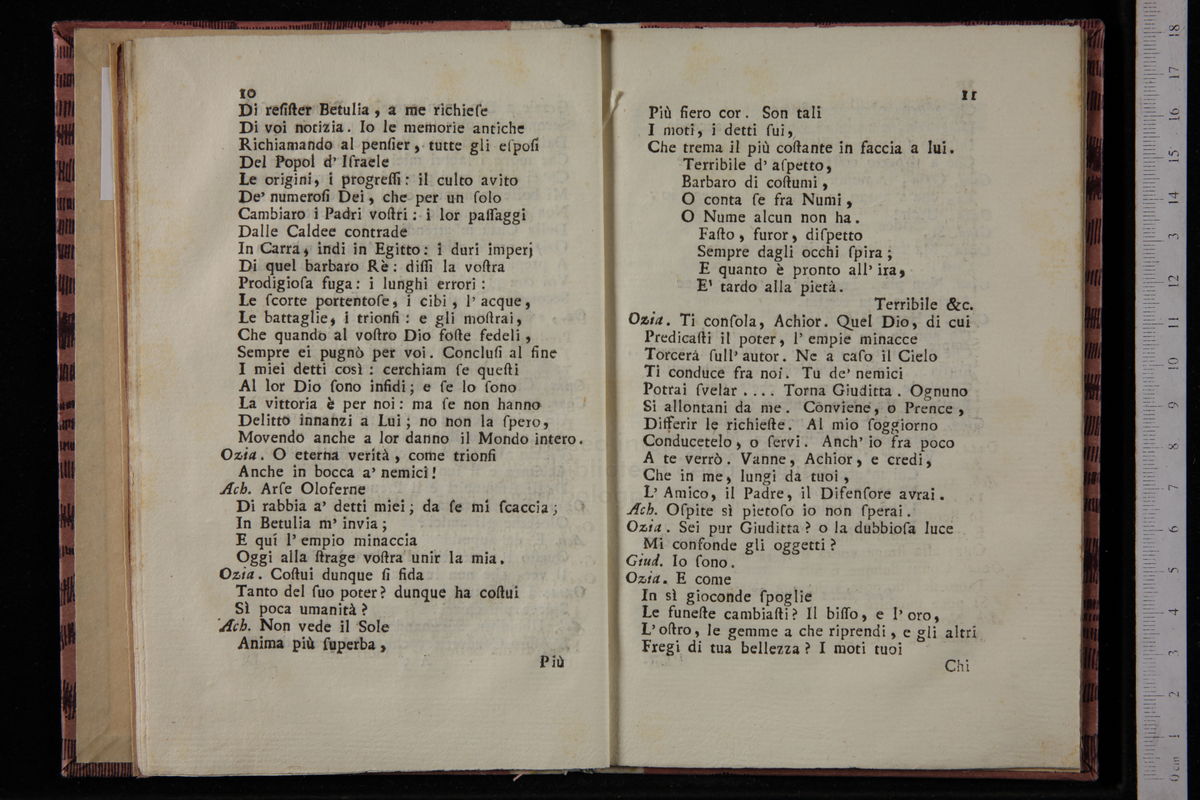 10
Di reſiſter Betulia, a me richieſe
Di voi notizia. Io le memorie antiche
Richiamando al penſier, tutte gli eſpoſi
Del Popol d' Iſraele
Le origini, i progreſſi: il culto avito
De' numeroſi Dei, che per un ſolo
Cambiaro i Padri voſtri: i lor paſſaggi
Dalle Caldee contrade
In Carra, indi in Egitto: i duri imperj
Di quel barbaro Rè: diſſi la voſtra
Prodigioſa fuga: i lunghi errori:
Le ſcorte portentoſe, i cibi, l' acque,
Le battaglie, i trionfi: e gli moſtrai,
Che quando al voſtro Dio foſte fedeli,
Sempre ei pugnò per voi. Concluſi al fine
I miei detti così: cerchiam ſe queſti
Al lor Dio ſono infidi; e ſe lo ſono
La vittoria è per noi: ma ſe non hanno
Delitto innanzi a Lui; no non la ſpero,
Movendo anche a lor danno il Mondo intero.
Ozia. O eterna verità, come trionfi
Anche in bocca a' nemici!
Ach. Arſe Oloferne
Di rabbia a' detti miei; da ſe mi ſcaccia;
In Betulia m' invia;
E quí l' empio minaccia
Oggi alla ſtrage voſtra unir la mia.
Ozia. Coſtui dunque ſi fida
Tanto del ſuo poter? dunque ha coſtui
Sì poca umanità?
Ach. Non vede il Sole
Anima più ſuperba,
Più
11
Più fiero cor. Son tali
I moti, i detti ſui,
Che trema il più coſtante in faccia a lui.
Terribile d' aſpetto,
Barbaro di coſtumi,
O conta ſe fra Numi,
O Nume alcun non ha.
Faſto, furor, diſpetto
Sempre dagli occhi ſpira;
E quanto è pronto all' ira,
E' tardo alla pietà.
Terribile &c.
Ozia. Ti conſola, Achior. Quel Dio, di cui
Predicaſti il poter, l' empie minacce
Torcerà ſull' autor. Ne a caſo il Cielo
Ti conduce fra noi. Tu de' nemici
Potrai ſvelar .... Torna Giuditta. Ognuno
Si allontani da me. Conviene, o Prence,
Differir le richieſte. Al mio ſoggiorno
Conducetelo, o ſervi. Anch' io fra poco
A te verrò. Vanne, Achior, e credi,
Che in me, lungi da tuoi,
L' Amico, il Padre, il Difenſore avrai.
Ach. Oſpite sì pietoſo io non ſperai.
Ozia. Sei pur Giuditta? o la dubbioſa luce
Mi confonde gli oggetti?
Giud. Io ſono.
Ozia. E come
In sì gioconde ſpoglie
Le funeſte cambiaſti? Il biſſo, e l' oro,
L' oſtro, le gemme a che riprendi, e gli altri
Fregi di tua bellezza? I moti tuoi
Chi
0 cm 1 2 3 4 5 6 7 8 9 10 11 12 13 14 15 16 17 18